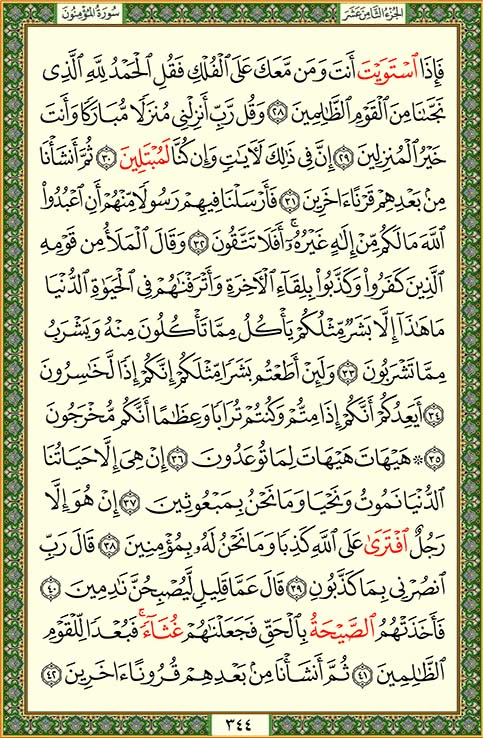 الجزء الثامن عشر
سورة المؤمنون
فَإِذَا ٱسْتَوَيْتَ أَنتَ وَمَن مَّعَكَ عَلَى ٱلْفُلْكِ فَقُلِ ٱلْحَمْدُ لِلَّهِ ٱلَّذِى
نَجَّىٰنَا مِنَ ٱلْقَوْمِ ٱلظَّٰلِمِينَ ٢٨ وَقُل رَّبِّ أَنزِلْنِى مُنزَلًا مُّبَارَكًا وَأَنتَ
خَيْرُ ٱلْمُنزِلِينَ ٢٩ إِنَّ فِى ذَٰلِكَ لَـَٔايَٰتٍ وَإِن كُنَّا لَمُبْتَلِينَ ٣٠ ثُمَّ أَنشَأْنَا
مِنۢ بَعْدِهِمْ قَرْنًا ءَاخَرِينَ ٣١ فَأَرْسَلْنَا فِيهِمْ رَسُولًا مِّنْهُمْ أَنِ ٱعْبُدُوا۟
ٱللَّهَ مَا لَكُم مِّنْ إِلَٰهٍ غَيْرُهُۥٓ ۖ أَفَلَا تَتَّقُونَ ٣٢ وَقَالَ ٱلْمَلَأُ مِن قَوْمِهِ
ٱلَّذِينَ كَفَرُوا۟ وَكَذَّبُوا۟ بِلِقَآءِ ٱلْـَٔاخِرَةِ وَأَتْرَفْنَٰهُمْ فِى ٱلْحَيَوٰةِ ٱلدُّنْيَا
مَا هَٰذَآ إِلَّا بَشَرٌ مِّثْلُكُمْ يَأْكُلُ مِمَّا تَأْكُلُونَ مِنْهُ وَيَشْرَبُ
مِمَّا تَشْرَبُونَ ٣٣ وَلَئِنْ أَطَعْتُم بَشَرًا مِّثْلَكُمْ إِنَّكُمْ إِذًا لَّخَٰسِرُونَ
٣٤ أَيَعِدُكُمْ أَنَّكُمْ إِذَا مِتُّمْ وَكُنتُمْ تُرَابًا وَعِظَٰمًا أَنَّكُم مُّخْرَجُونَ
٣٥ ۞ هَيْهَاتَ هَيْهَاتَ لِمَا تُوعَدُونَ ٣٦ إِنْ هِىَ إِلَّا حَيَاتُنَا
ٱلدُّنْيَا نَمُوتُ وَنَحْيَا وَمَا نَحْنُ بِمَبْعُوثِينَ ٣٧ إِنْ هُوَ إِلَّا
رَجُلٌ ٱفْتَرَىٰ عَلَى ٱللَّهِ كَذِبًا وَمَا نَحْنُ لَهُۥ بِمُؤْمِنِينَ ٣٨ قَالَ رَبِّ
ٱنصُرْنِى بِمَا كَذَّبُونِ ٣٩ قَالَ عَمَّا قَلِيلٍ لَّيُصْبِحُنَّ نَٰدِمِينَ ٤٠
فَأَخَذَتْهُمُ ٱلصَّيْحَةُ بِٱلْحَقِّ فَجَعَلْنَٰهُمْ غُثَآءً ۚ فَبُعْدًا لِّلْقَوْمِ
ٱلظَّٰلِمِينَ ٤١ ثُمَّ أَنشَأْنَا مِنۢ بَعْدِهِمْ قُرُونًا ءَاخَرِينَ ٤٢
٣٤٤